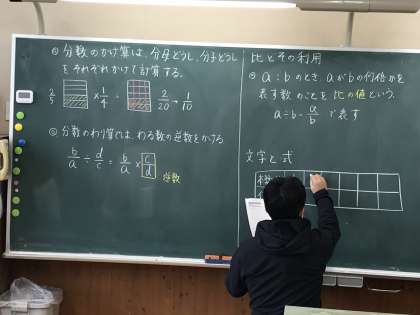 ⑤分数のかけ算は、分母どうし、分子どうし
をそれぞれかけて計算する。
2/5 × 1/4 = 2/20 → 1/10
⑥分数のわり算では、わる数の逆数をかける
b/a ÷ d/c = b/a × c/d 逆数
比とその利用
a:bのとき aがbの何倍かを
表す数のことを 比の値という。
a÷b = a/b で表す
文字と式